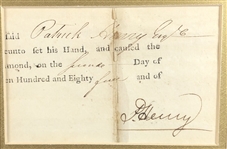 said Patrick Henry Esqr
unto set his Hand, and caused the
mond, on the second Day of
n Hundred and Eighty and of
P. Henry